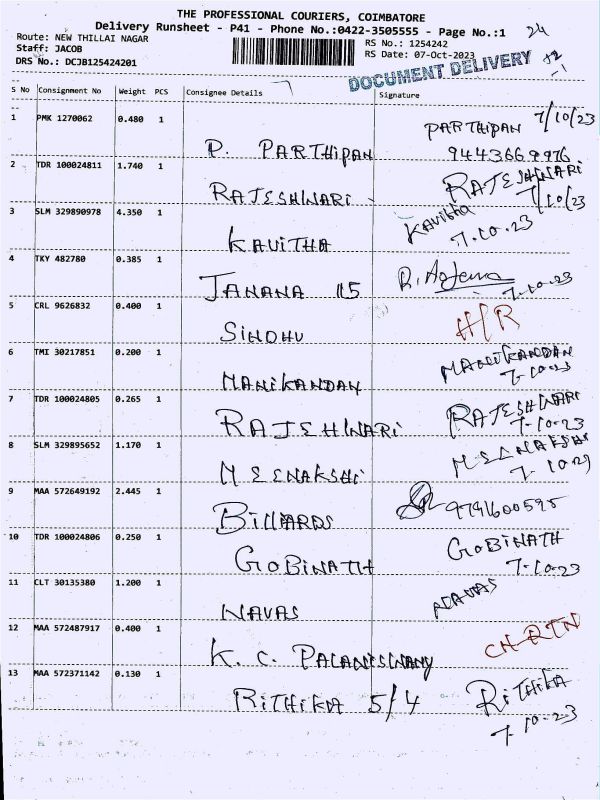 THE PROFESSIONAL COURIERS, COIMBATORE
Delivery Runsheet - P41 - Phone No.:0422-3505555 - Page No.:1
24
Route: NEW THILLAI NAGAR
RS No.: 1254242
Staff: JACOB
RS Date: 07-Oct-2023
DRS No.: DCJB125424201
DOCUMENT DELIVERY
S No Consignment No Weight PCS Consignee Details Signature
1 PMK 1270062 0.480 1 P. PARTHIPAN PARTHIPAN 7/10/23
9443669976
2 TDR 100024811 1.740 1 RAJESHWARI RAJESHWARI
7/10/23
3 SLM 329890978 4.350 1 KAVITHA Kavitha
7.10.23
4 TKY 482780 0.385 1 JANANA 115 7-10-23
5 CRL 9626832 0.400 1 SINDHU H/R
6 TMI 30217851 0.200 1 MANIKANDAN MANIKANDAN
7-10-23
7 TDR 100024805 0.265 1 RAJESHWARI RAJESHWARI
7-10-23
8 SLM 329895652 1.170 1 MEENAKSHI MEENAKSHI
7-10-23
9 MAA 572649192 2.445 1 BILLIARDS 9791600595
10 TDR 100024806 0.250 1 GOBINATH GOBINATH
7-10-23
11 CLT 30135380 1.200 1 NAVAS NAVAS
12 MAA 572487917 0.400 1 K. C. PALANISWAMY CH-RTN
13 MAA 572371142 0.130 1 RITHIKA 5/4 RITHIKA
7-10-23